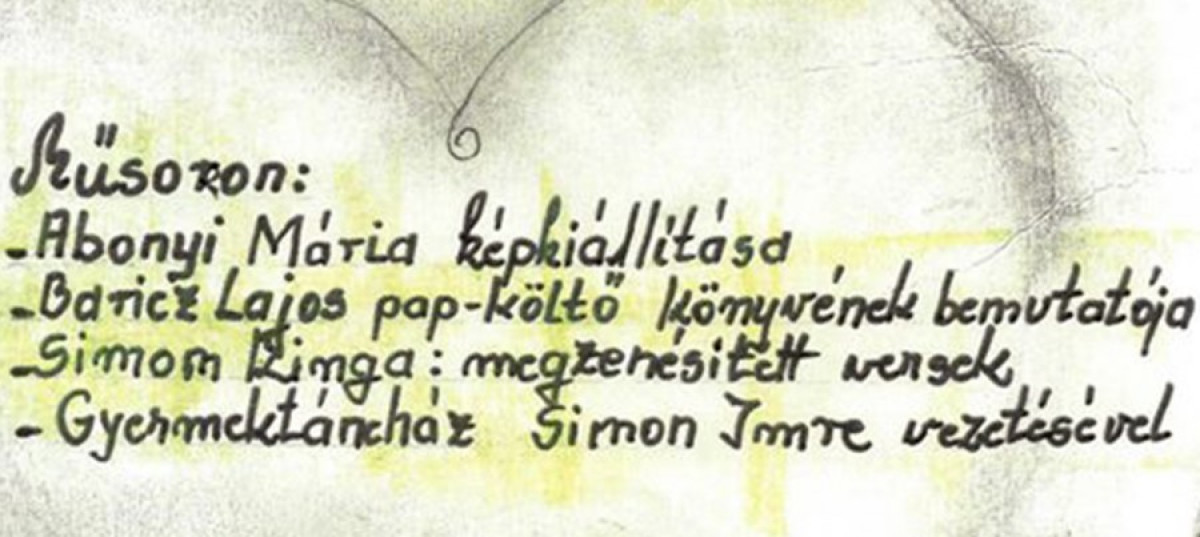 Műsoron:
-Abonyi Mária képkiállítása
-Baricz Lajos pap-költő könyvének bemutatója
-Simon Kinga: megzenésitett versek,
- Gyermektáncház Simon Imre vezetésével